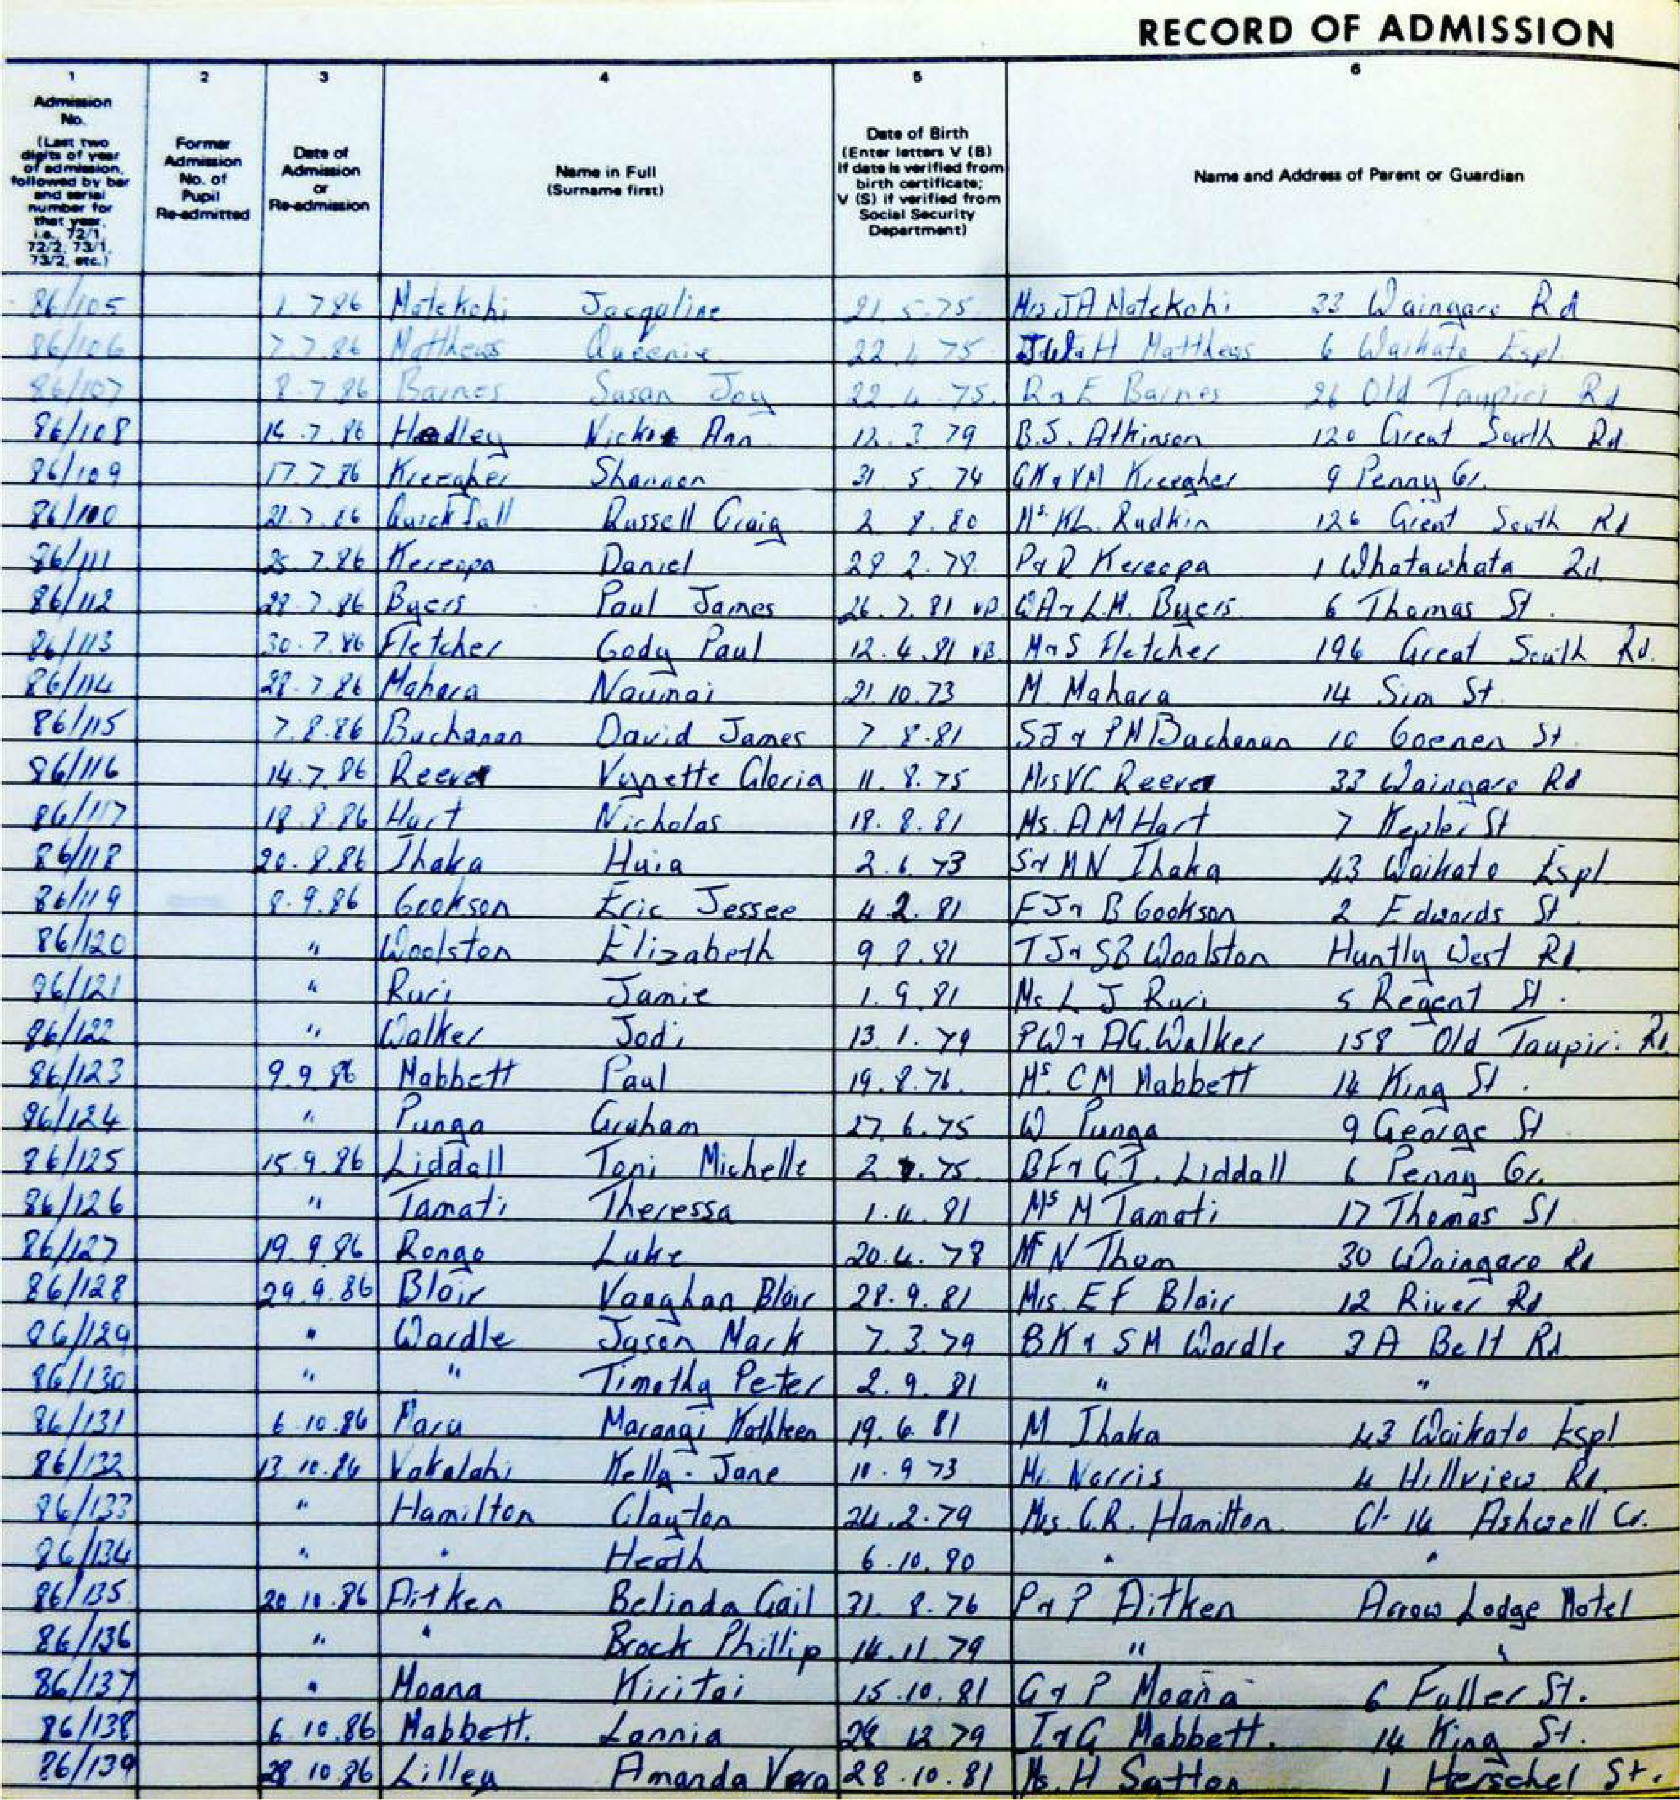 RECORD OF ADMISSION
1 2 3 4 5 6
Admission No. (Last two digits of year of admission, followed by bar and serial number for that year, i.e., 72/1, 72/2, 73/1, 73/2, etc.)
Former Admission No. of Pupil Re-admitted
Date of Admission or Re-admission
Name in Full (Surname first)
Date of Birth (Enter letters V (B) if date is verified from birth certificate; V (S) if verified from Social Security Department)
Name and Address of Parent or Guardian
86/105 1.7.86 Matekohi Jacquline 21.5.75 Mrs JA Matekohi 33 Waingaro Rd
86/106 7.7.86 Matthews Queenie 22.4.75 H Matthews 6 Waikato Espl
86/107 8.7.86 Barnes Susan Joy 22.4.75. R & E Barnes 26 Old Taupiri Rd
86/108 14.7.86 Hadley Nickie Ann 12.3.79 B.S. Atkinson 120 Great South Rd
86/109 17.7.86 Kreegher Shannon 31.5.74 GK & VM Kreegher 9 Penny Cr.
86/100 21.7.86 Quickfall Russell Craig 2.8.80 Ms KL. Rudkin 126 Great South Rd
86/111 25.7.86 Kereopa Daniel 28.2.78 P & R Kereopa 1 Whatawhata Rd
86/112 28.7.86 Byers Paul James 26.7.81 VB WA & L.M. Byers 6 Thomas St.
86/113 30.7.86 Fletcher Cody Paul 12.4.81 VB M & S Fletcher 196 Great South Rd.
86/114 28.7.86 Mahara Naumai 21.10.73 M Mahara 14 Sim St.
86/115 7.8.86 Buchanan David James 7 8.81 SJ & PM Buchanan 10 Coenen St
86/116 14.7.86 Reever Vynette Gloria 11.8.75 Mrs VC Reever 33 Waingaro Rd
86/117 18.8.86 Hart Nicholas 18.8.81 Ms. AM Hart 7 Kepler St
86/118 20.8.86 Ihaka Huia 2.6.73 S & MN Ihaka 43 Waikato Espl
86/119 8.9.86 Cookson Eric Jessee 4.2.81 EJ & B Cookson 2 Edwards St
86/120 " Woolston Elizabeth 9 8.81 TJ & SB Woolston Huntly West Rd
86/121 " Ruri Jamie 1.9.81 Ms L J Ruri 5 Regent St.
86/122 " Walker Jodi 13.1.79 PW & AG. Walker 158 Old Taupiri Rd.
86/123 9.9.86 Mabbett Paul 19.8.76. Ms. C M Mabbett 14 King St.
86/124 " Punga Graham 27.6.75 W Punga 9 George St
86/125 15.9.86 Liddall Toni Michelle 75 BF & G.I. Liddall 6 Penny Cr.
86/126 " Tamati Theressa 1.4.81 Ms M Tamati 17 Thomas St
86/127 19.9.86 Rongo Luke 20.4.78 N Thom 30 Waingaro Rd
86/128 29.9.86 Blair Vaughan Blair 28.9.81 Mrs. E F Blair 12 River Rd
86/129 " Wardle Jason Mark 7.3.79 BK & SM Wardle 3A Belt Rd
86/130 " " Timothy Peter 2.9.81 " "
86/131 6.10.86 Paru Marangi Kathleen 19.6.81 M Ihaka 43 Waikato Espl
86/132 13.10.86 Vakalahi Kelly-Jane 10.9 73 Mr Norris 4 Hillview Rd.
86/133 " Hamilton Clayton 24.2.79 Mrs. C.R. Hamilton Cl-14 Ashwell Cr.
86/134 " " Heath 6.10.80 " "
86/135 20.10.86 Aitken Belinda Gail 31.8.76 P & P Aitken Arrow Lodge Motel
86/136 " " Brock Phillip 14.11.79 " "
86/137 " Moana Kiritai 15.10.81 G & P Moana 6 Fuller St.
86/138 6.10.86 Mabbett. Lonnia 28 12 79 I & G Mabbett. 14 King St.
86/139 28.10.86 Lilley Amanda Vera 28.10.81 Ms. H Sutton 1 Herschel St.